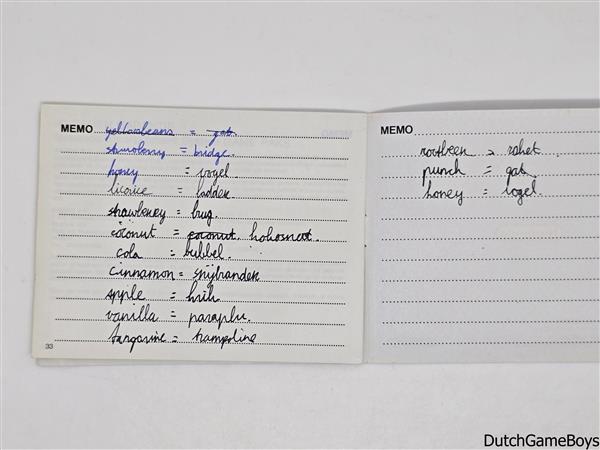 MEMO yellowbeans = gat.
strawberry = bridge.
honey = vogel
licorice = ladder
strawberry = brug.
coconut = coconut kokosnoot.
cola = bubbel.
cinnamon = snijbrander
apple = krik
vanilla = paraplu.
tangarine = trampoline
33
MEMO
rootbeer = raket
punch = gat
honey = vogel
DutchGameBoys